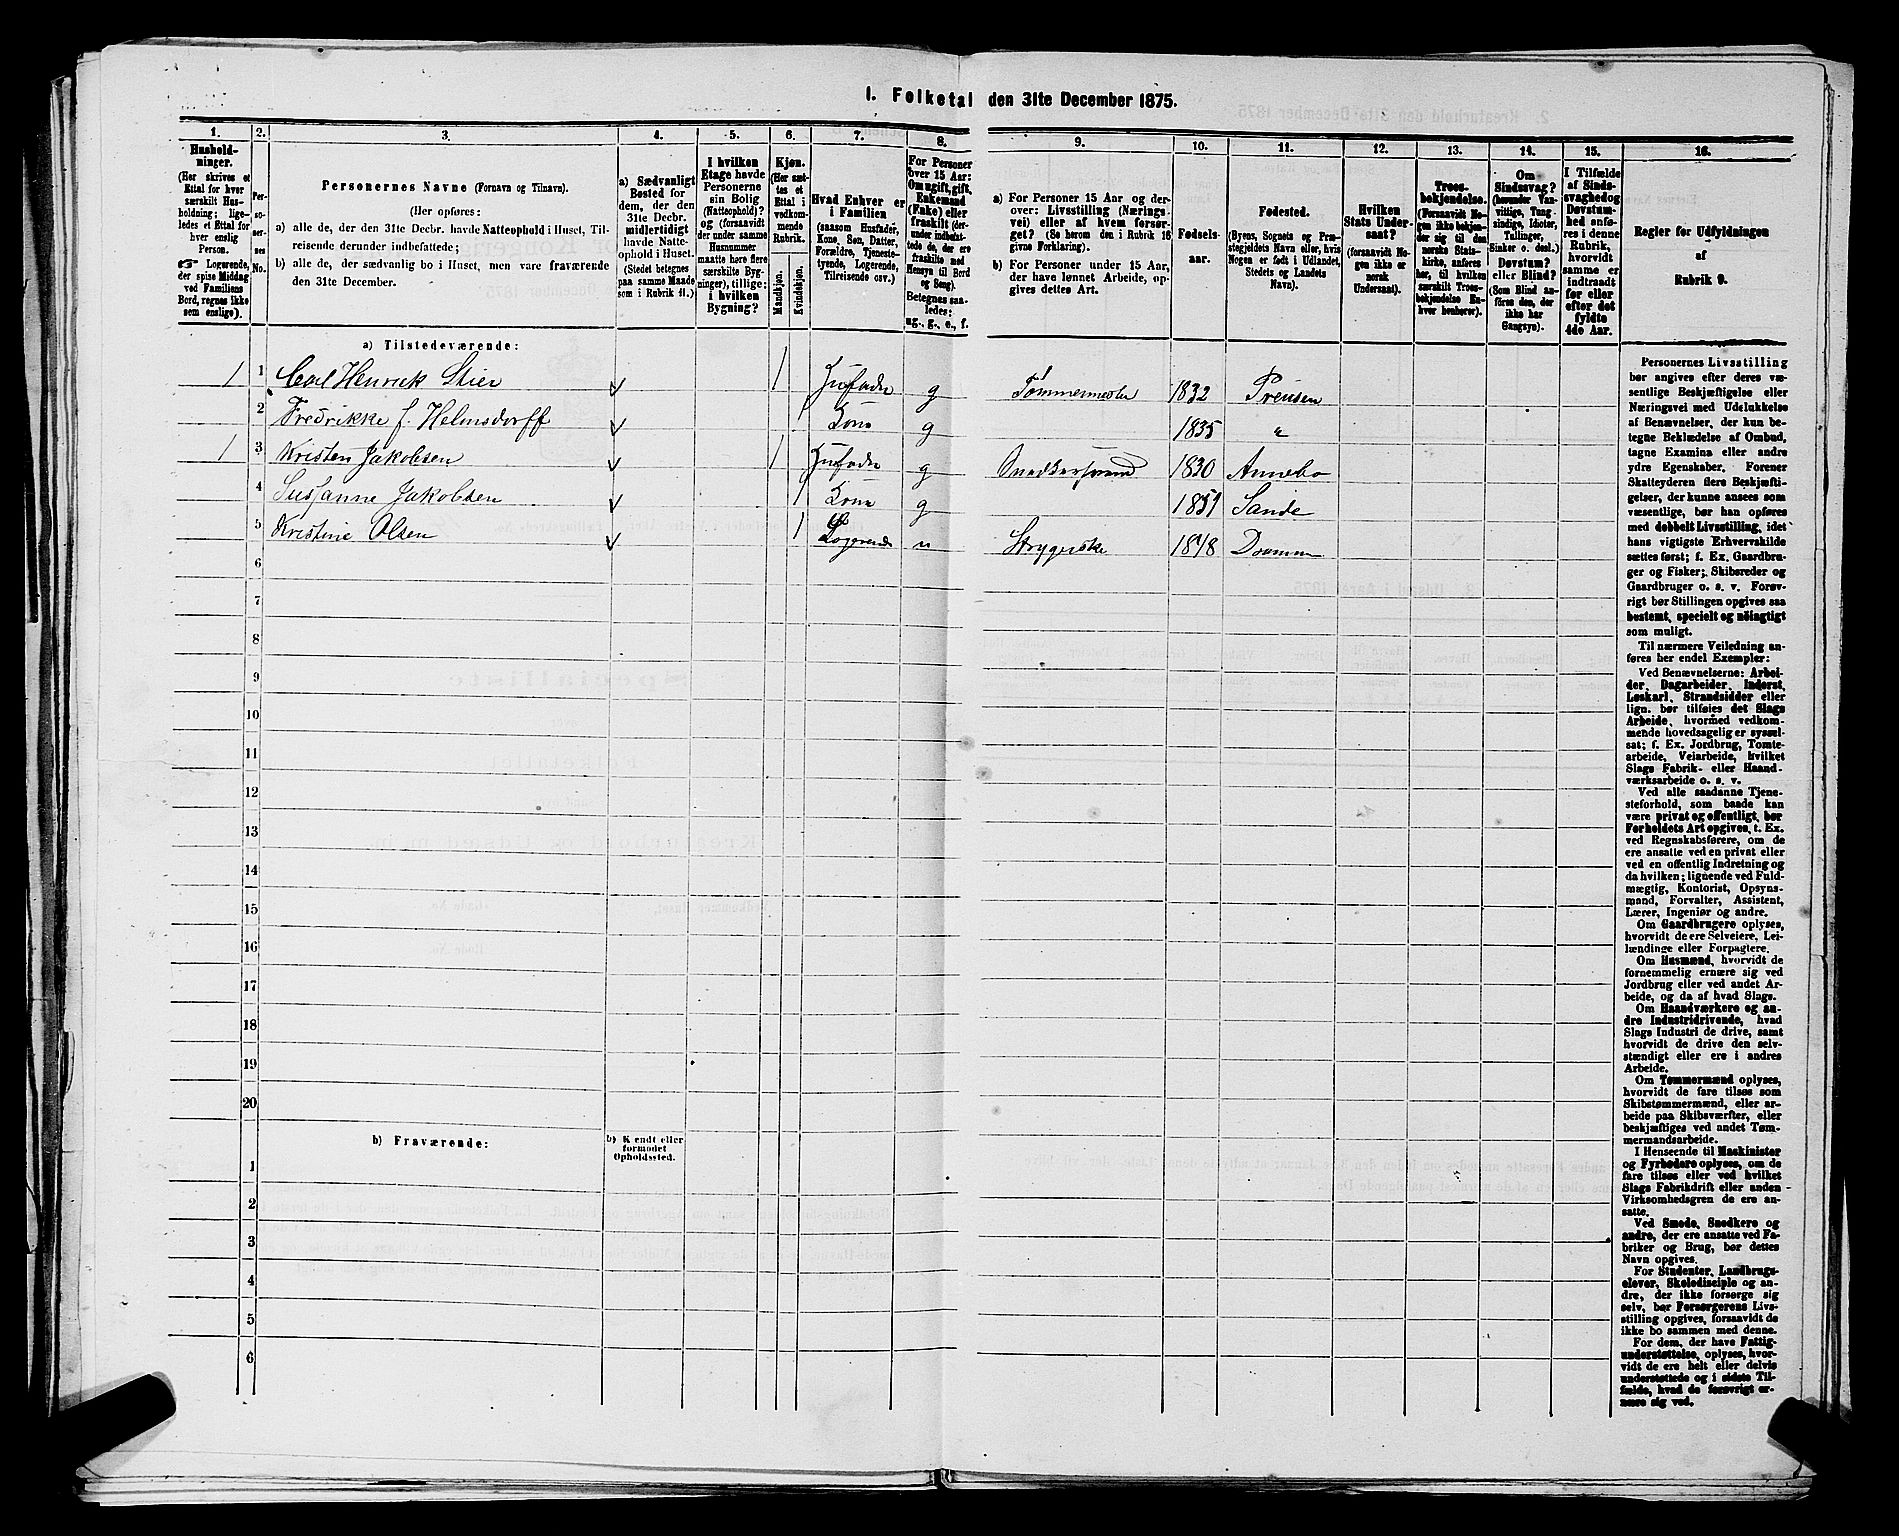 I. Folketal den 31te December 1875.
1. 2. 3. 4. 5. 6. 7. 8. 9. 10. 11. 12. 13. 14. 15. 16.
Hushold-
ninger.
(Her skrives et
Ettal for hver
særskilt Hus-
holdning; lige-
ledes et Ettal for
hver enslig
Person.
☞ Logerende,
der spise Middag
ved Familiens
Bord, regnes ikke
som enslige).
Per-
so-
ner-
nes
No.
Personernes Navne (Fornavn og Tilnavn).
(Her opføres:
a) alle de, der den 31te Decbr. havde Natteophold i Huset, Til-
reisende derunder indbefattede;
b) alle de, der sædvanlig bo i Huset, men vare fraværende
den 31te December.
a) Sædvanligt
Bosted for
dem, der den
31te Decbr.
midlertidigt
havde Natte-
ophold i Huset.
(Stedet betegnes
paa samme Maade
som i Rubrik 11.)
I hvilken
Etage havde
Personerne
sin Bolig
(Natteophold)?
og (forsaavidt
der under samme
Husnummer
maatte høre flere
særskilte Byg-
ninger), tillige:
i hvilken
Bygning?
Kjøn.
(Her sæt-
tes et
Ettal i
vedkom-
mende
Rubrik.
Mandkjøn.
Kvindekjøn.
Hvad Enhver er
i Familien
(saasom Husfader,
Kone, Søn, Datter,
Forældre, Tjeneste-
tyende, Logerende,
Tilreisende osv.)
For Personer
over 15 Aar:
Om ugift, gift,
Enkemand
(Enke) eller
fraskilt (der-
under indbefat-
tede de, der ere
fraskilte med
Hensyn til Bord
og Seng).
Betegnes saa-
ledes:
ug., g., e., f.
a) For Personer 15 Aar og der-
over: Livsstilling (Nærings-
vei) eller af hvem forsør-
get? (Se herom den i Rubrik 16
givne Forklaring).
b) For Personer under 15 Aar,
der have lønnet Arbeide, op-
gives dettes Art.
Fødsels-
aar.
Fødested.
(Byens, Sognets og Præ-
stegjeldets Navn eller, hvis
Nogen er født i Udlandet,
Stedets og Landets
Navn).
Hvilken
Stats Under-
saat?
(forsaavidt No-
gen ikke er
norsk
Undersaat).
Troes-
bekjendelse.
(Forsaavidt No-
gen ikke bekjen-
der sig til den
norske Stats-
kirke, anføres
her, til hvilken
særskilt Troes-
bekjendelse En-
hver henhører).
Om
Sindssvag?
(herunder Van-
vittige, Tung-
sindige, Idioter,
Tullinger,
Sinker o. desl.).
Døvstum?
eller Blind?
(Som Blind an-
føres den, der
ikke har
Gangsyn).
I Tilfælde
af Sinds-
svaghed og
Døvstum-
hed anfø-
res i denne
Rubrik,
hvorvidt
samme er
indtraadt
før eller
efter det
fyldte
4de Aar.
Regler for Udfyldningen
af
Rubrik 9.
a) Tilstedeværende:
1 1 Carl Henrick Stier 1 Husfader g Tømmermester 1832 Preusen
2 Fredrikke f. Helmsdorff 1 Kone g 1835 "
1 3 Kristen Jakobsen 1 Husfader g Snedkersvend 1830 Annebo
4 Susanne Jakobsen 1 Kone g 1851 Sande
5 Kristine Olsen 1 Logerende u Strygerske 1848 Drammen
6
7
8
9
10
11
12
13
14
15
16
17
18
19
20
b) Fraværende:
b) Kjendt eller
formodet
Opholdssted.
1
2
3
4
5
6
Personernes Livsstilling
bør angives efter deres væ-
sentlige Beskjæftigelse eller
Næringsvei med Udelukkelse
af Benævnelser, der kun be-
tegne Beklædelse af Ombud,
tagne Examina eller andre
ydre Egenskaber. Forener
Skatteyderen flere Beskjæfti-
gelser, der kunne ansees som
væsentlige, bør han opføres
med dobbelt Livsstilling, idet
hans vigtigste Erhvervskilde
sættes først; f. Ex. Gaardbru-
ger og Fisker; Skibsreder og
Gaardbruger o. s. v. Forøv-
rigt bør Stillingen opgives saa
bestemt, specielt og nøiagtigt
som muligt.
Til nærmere Veiledning an-
føres her endel Exempler:
Ved Benævnelserne: Arbei-
der, Dagarbeider, Inderst,
Løskarl, Strandsidder eller
lign. bør tilføies det Slags
Arbeide, hvormed vedkom-
mende hovedsagelig er syssel-
sat; f. Ex. Jordbrug, Tomte-
arbeide, Veiarbeide, hvilket
Slags Fabrik- eller Haand-
værksarbeide o. s. v.
Ved alle saadanne Tjene-
steforhold, som baade kan
være privat og offentligt, bør
Forholdets Art opgives, t. Ex.
ved Regnskabsførere, om de
ere ansatte ved en privat eller
ved en offentlig Indretning og
da hvilken; lignende ved Fuld-
mægtig, Kontorist, Opsyns-
mand, Forvalter, Assistent,
Lærer, Ingeniør og andre.
Om Gaardbrugere oplyses,
hvorvidt de ere Selveiere, Lei-
lændinge eller Forpagtere.
Om Husmænd, hvorvidt de
fornemmelig ernære sig ved
Jordbrug eller ved andet Ar-
beide, og da af hvad Slags.
Om Haandværkere og an-
dre Industridrivende, hvad
Slags Industri de drive, samt
hvorvidt de drive den selv-
stændigt eller ere i andres
Arbeide.
Om Tømmermænd oplyses,
hvorvidt de fare tilsøs som
Skibstømmermænd, eller ar-
beide paa Skibsværfter, eller
beskjæftiges ved andet Tøm-
mermandsarbeide.
I Henseende til Maskinister
og Fyrbødere oplyses, om de
fare tilsøs eller ved hvilket
Slags Fabrikdrift eller anden
Virksomhedsgren de ere an-
satte.
Ved Smede, Snedkere og
andre, der ere ansatte ved Fa-
briker og Brug, bør dettes
Navn opgives.
For Studenter, Landbrugs-
elever, Skoledisciple og an-
dre, der ikke forsørge sig
selv, bør Forsørgerens Livs-
stilling opgives, forsaavidt de
ikke bo sammen med denne.
For dem, der have Fattig-
understøttelse, oplyses, hvor-
vidt de ere helt eller delvis
understøttede og i sidste Til-
fælde, hvad de forøvrigt er-
nære sig ved.